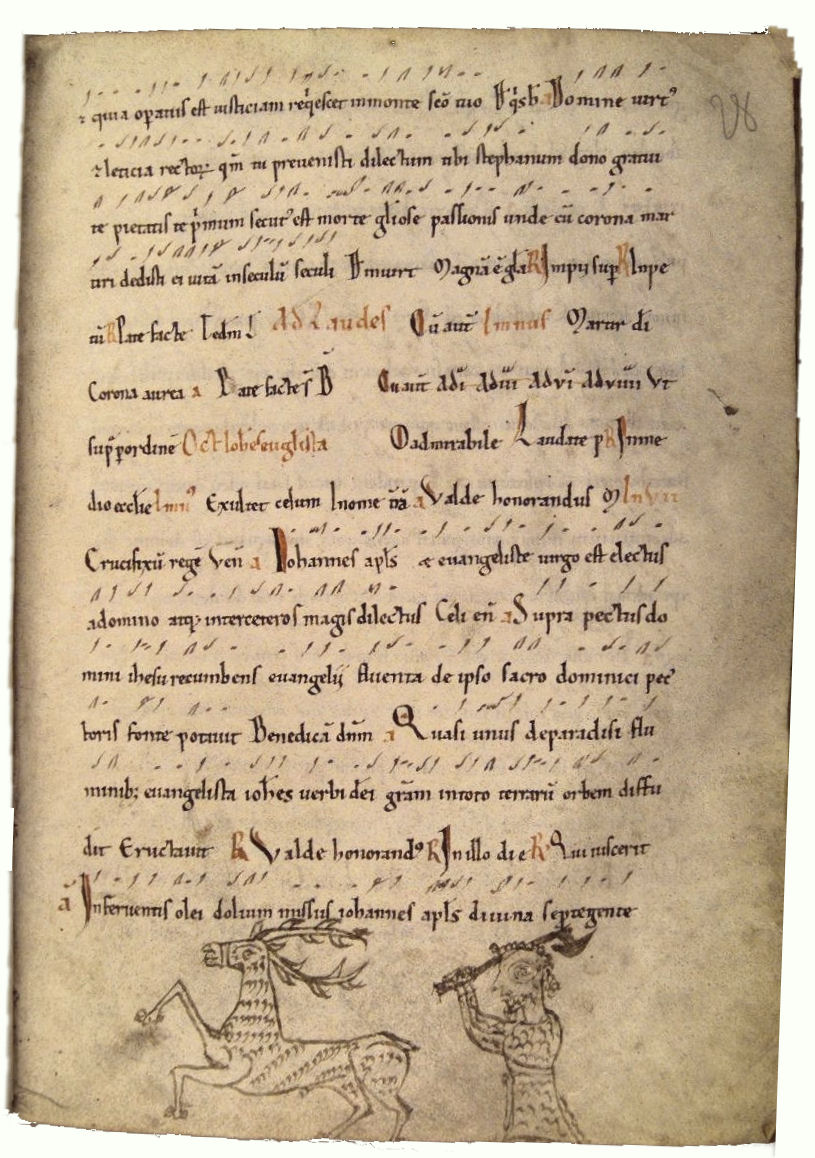 28
⁊ quia opatus est iusticiam req̇escet in monte sc̄o tuo Domine uirt᾽
⁊ leticia rector qm̄ tu prevenisti dilectum tibi stephanum dono gratui
te pietatis te p̄mum secut᾽ est morte gl̄iose passionis unde cū corona mar
tiri dedisti ei uitā in seculū seculi Dn̄i uirt Magna ē gl̄a R Impii sup R Inpe
tū R Patefacte Ad Laudes Cū aut̄ Imnus Martir dī
Corona aurea a Patefacte s̄ Cū aut̄ Ad i Ad iii Ad vi Ad viiii Vt
sup᾽ p ordine Oct Iohēs eug̅lista O admirabile Laudate p R In me
dio eccl̄ie Imn᾽ Exultet celum a Valde honorandus
Crucifixū regē Ven̄ a Iohannes apl̄s & euangeliste uirgo est electus
a domino atq; inter ceteros magis dilectus Celi en̄ a Supra pectus do
mini ihesu recumbens euangelij fluenta de ipso sacro dominici pec
toris fonte potauit Benedicā dn̄m a Quasi unus de paradisi flu
minib; euangelista ioh̄es uerbi dei grām in toto terrarū orbem diffu
dit Eructauit R Valde honorand᾽ R In illo die R Qui uicerit
ā In feruentis olei dolium missus iohannes apl̄s diuina se protegente